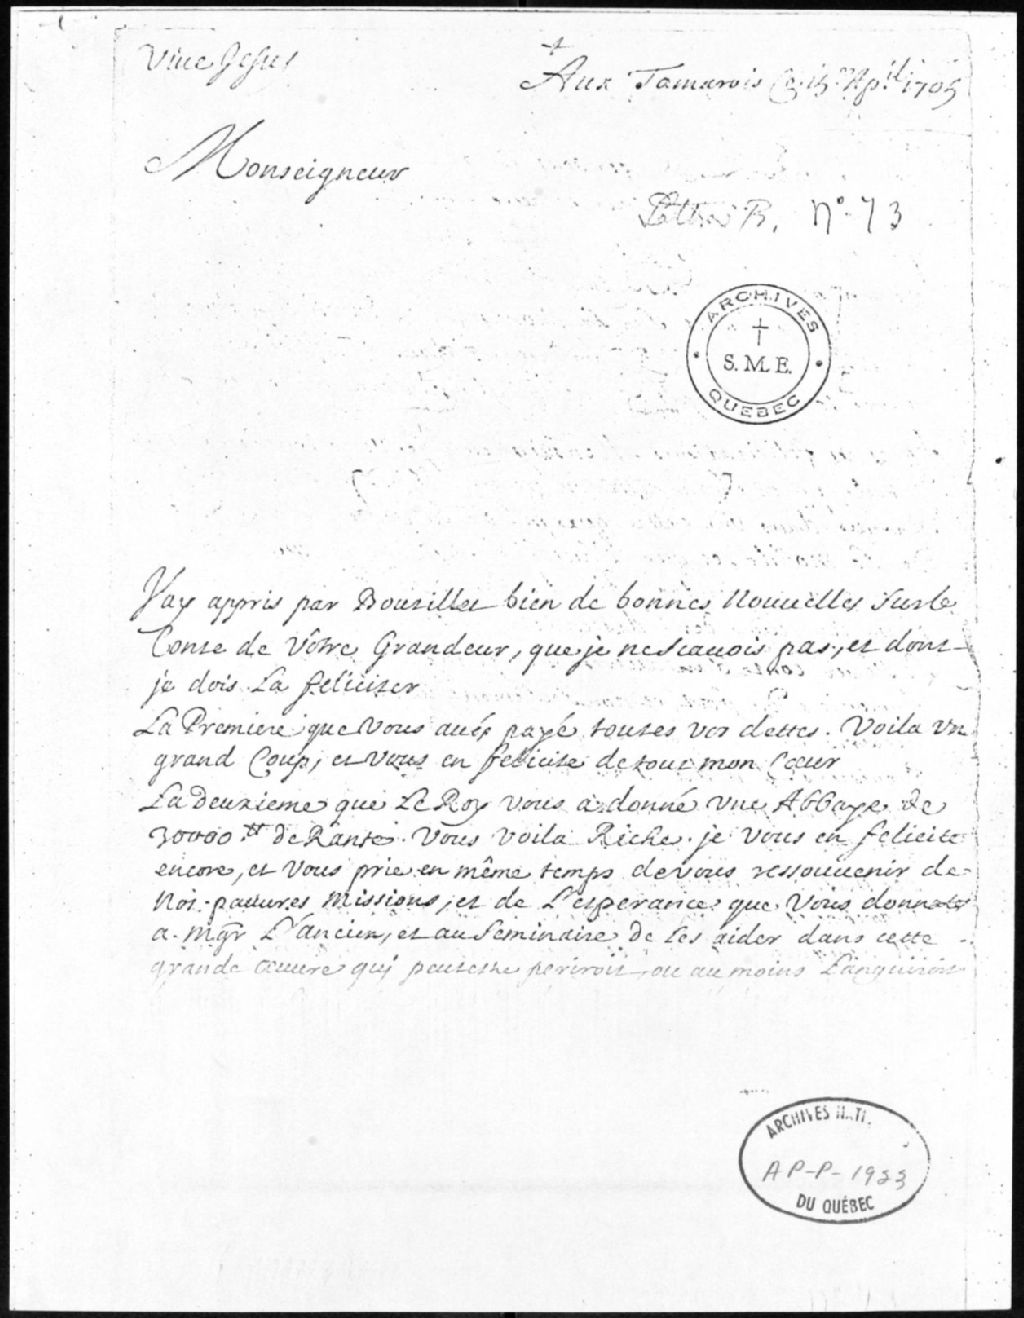 Viue Jesus
Aux Tamarois Ce 15 Apl 1705
Monseigneur
Lettres R, No. 73
ARCHIVES
S. M. E.
QUEBEC
J'ay appris par Bouteillet bien de bonnes Nouuelles Sur le
Conte de Vôtre Grandeur, que je ne scauois pas, et dont
je dois La feliciter
La Premiere que Vous aués payé toutes vos dettes. Voila vn
grand Coup, et Vous en felicite de tout mon Cœur
La deuxieme que Le Roy vous a donné vne Abbaye de
30000 tt de Rante. Vous Voila Riche. je Vous en felicite
encore, et Vous prie en même temps de vous ressouuenir de
Nos pauures Missions, et de L'esperance que Vous donnates
a Mgr L'ancien, et au Seminaire de Les aider dans cette
grande œuure qui peutestre periroit, ou au moins Languiroit
ARCHIVES
AP-P-1933
DU QUÉBEC